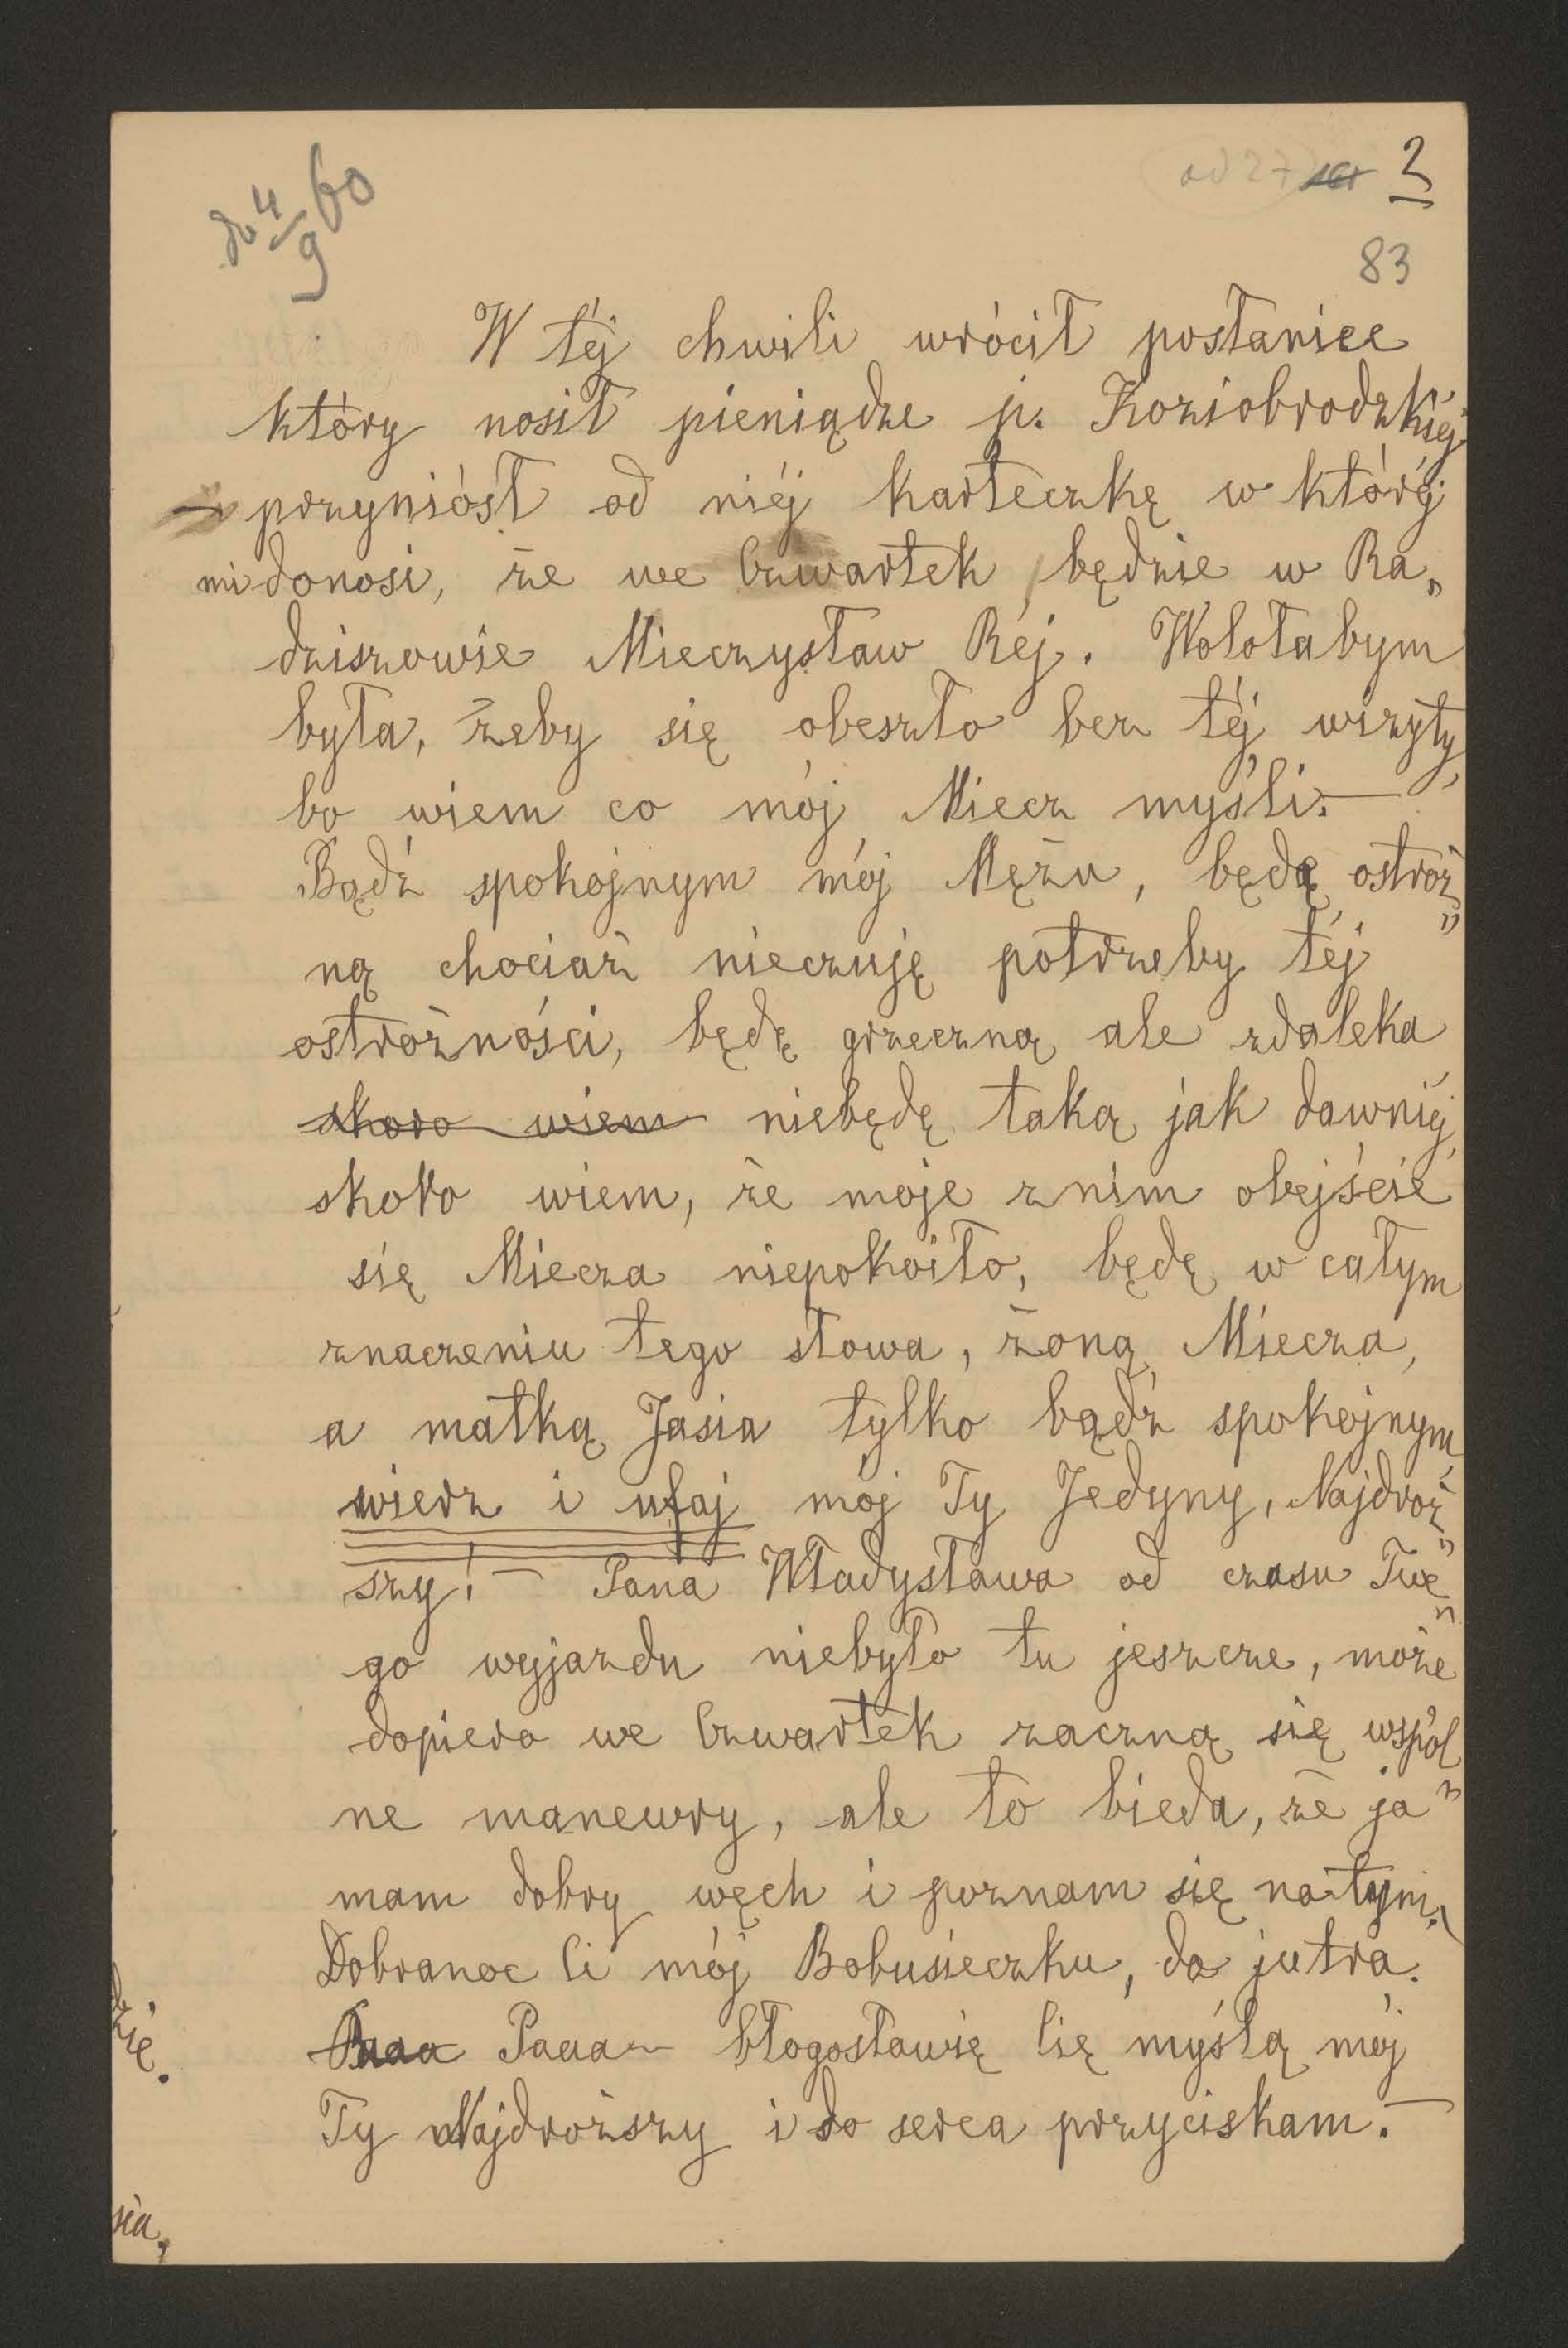 do 4/9 60
ad 27 2
83
W téj chwili wrócił posłaniec
który nosił pieniądze p. Koziobrodzkiéj
i przyniósł od niéj karteczkę w któréj
mi donosi, że we Czwartek będzie w Ra„
dziszowie Mieczysław Réj. Wolałabym
była, żeby się obeszło bez téj wizyty,
bo wiem co mój Miecz myśli. —
Bądź spokojnym mój Mężu, będę ostroż„
ną chociaż nieczuję potrzeby téj
ostrożności, będę grzeczną ale zdaleka
skoro wiem niebędę taką jak dawniéj,
skoro wiem, że moje z nim obejście
się Miecza niepokoiło, będę w całym
znaczeniu tego słowa, żoną Miecza,
a matką Jasia tylko bądź spokojnym
wierz i ufaj mój Ty Jedyny, Najdroż„
szy! — Pana Władysława od czasu Twe„
go wyjazdu niebyło tu jeszcze, może
dopiero we Czwartek zaczną się wspól„
ne manewry, ale to bieda, że ja
mam dobry węch i poznam się na tym.
Dobranoc Ci mój Bobusieczku, do jutra.
Paaa Paaa — błogosławię Cię myślą mój
Ty Najdroższy i do serca przyciskam. —
sia,